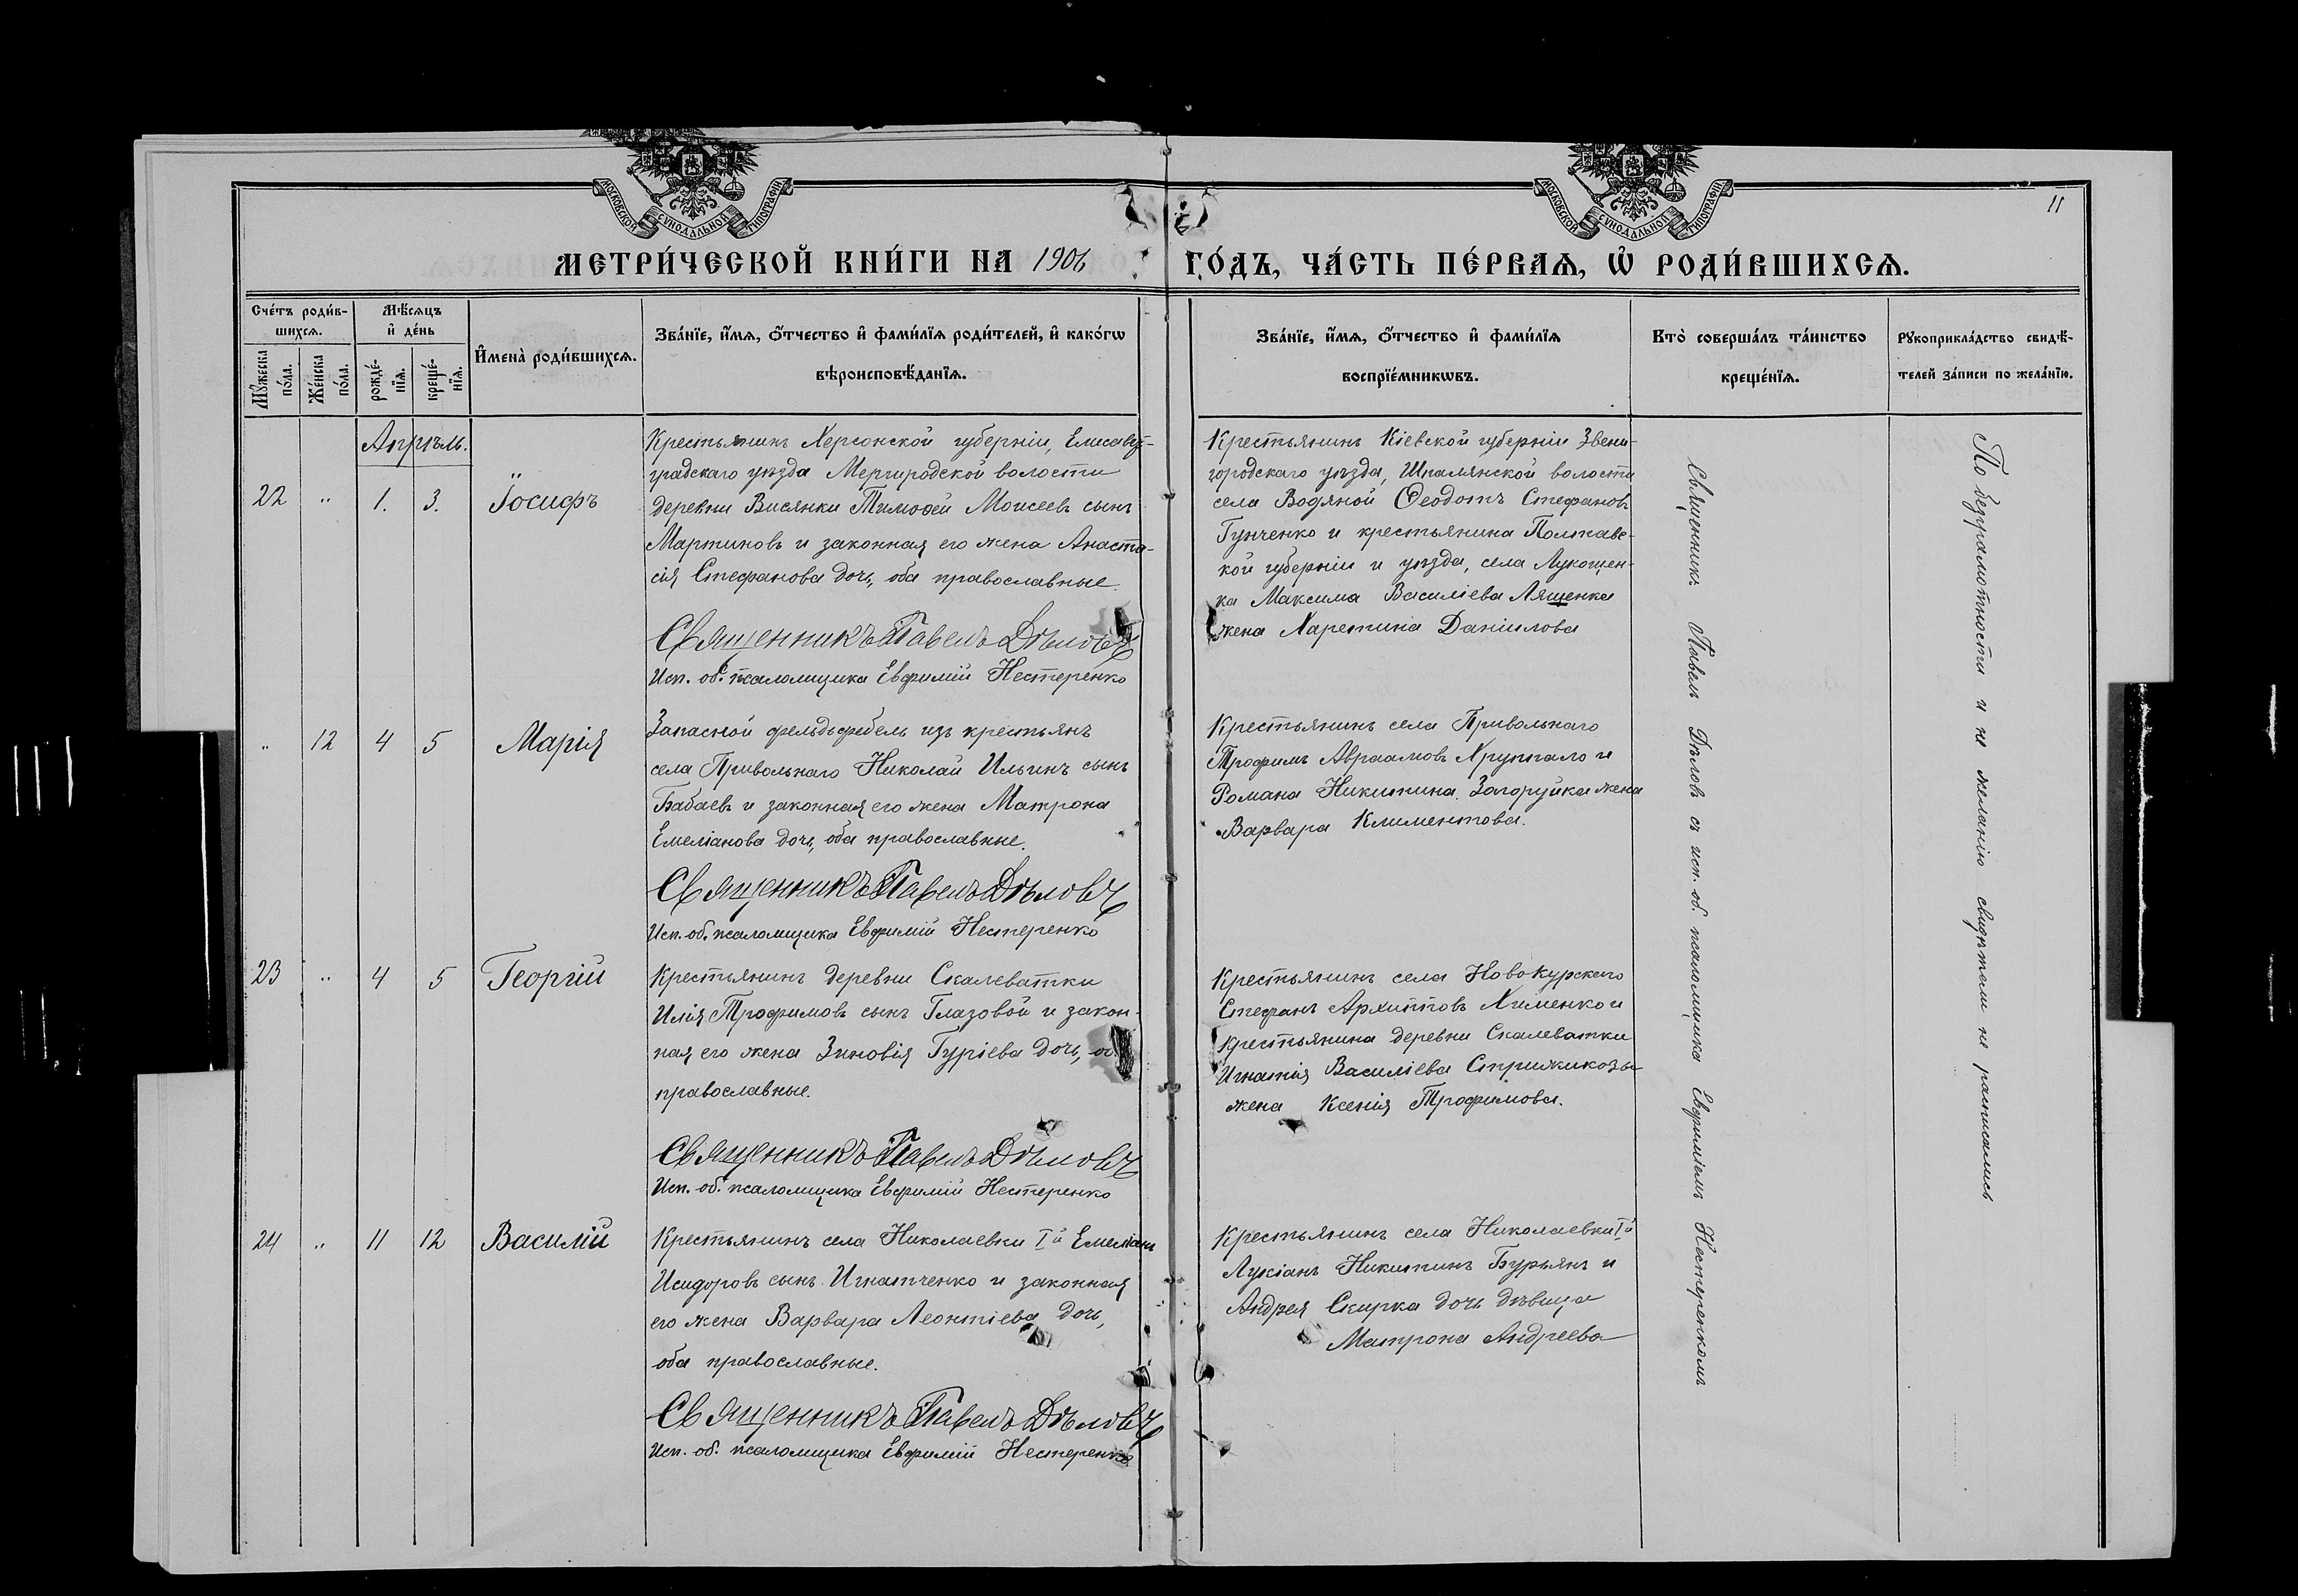 МОСКОВСКОЙ СѴНОДАЛЬНОЙ ТИПОГРАФІИ
МОСКОВСКОЙ СѴНОДАЛЬНОЙ ТИПОГРАФІИ
11
МЕТРИ́ЧЕСКОЙ КНИ́ГИ НА 1906 ГО́ДЪ, ЧА́СТЬ ПЕ́РВАѦ, Ѡ҆ РОДИ́ВШИХСѦ.
Сче́тъ роди́в-
шихсѧ.
Мꙋ́жеска по́ла.
Же́нска по́ла.
Мѣ́сѧцъ
и҆ де́нь
рожде́-
нїѧ.
креще́-
нїѧ.
И҆мена̀ роди́вшихсѧ.
Зва́нїе, и҆́мѧ, ѻ҆́тчество и҆ фами́лїѧ роди́телей, и҆ како́гѡ
вѣроисповѣ́данїѧ.
Зва́нїе, и҆́мѧ, ѻ҆́тчество и҆ фами́лїѧ
воспрїе́мникѡвъ.
Кто̀ соверша́лъ та́инство
креще́нїѧ.
Рꙋкоприкла́дство свидѣ́-
телей за́писи по жела́нїю.
Апрѣль.
22 " 1. 3. Іосифъ
Крестьянинъ Херсонской губерніи, Елисавет-
градскаго уѣзда Мергородской волости
деревни Висянки Тимоѳей Моисеевъ сынъ
Мартиновъ и законная его жена Анаста-
сія Стефанова дочь, оба православные.
Священникъ Павелъ Дѣловъ
Исп. об. псаломщика Евфимій Нестеренко
Крестьянинъ Кіевской губерніи Звени-
городскаго уѣзда, Шполянской волости
села Водяной Ѳеодотъ Стефановъ
Гунченко и крестьянина Полтавс-
кой губерніи и уѣзда, села Лукощен-
ка Максима Василіева Лященка
жена Харетина Даніилова
" 12 4 5 Марія
Запасной фельдфебель изъ крестьянъ
села Привольнаго Николай Ильинъ сынъ
Бабаевъ и законная его жена Матрона
Емеліанова дочь, оба православные.
Священникъ Павелъ Дѣловъ
Исп. об. псаломщика Евфимій Нестеренко
Крестьянинъ села Привольнаго
Трофимъ Авраамовъ Хрупало и
Романа Никитина Загоруйка жена
Варвара Климентова.
23 " 4 5 Георгій
Крестьянинъ деревни Скалеватки
Илія Трофимовъ сынъ Глазовой и закон-
ная его жена Зиновія Гуріева дочь, оба
православные.
Священникъ Павелъ Дѣловъ
Исп. об. псаломщика Евфимій Нестеренко
Крестьянинъ села Новокурскаго
Стефанъ Архиповъ Хименко и
крестьянина деревни Скалеватки
Игнатія Василіева Стрижикозы
жена Ксенія Трофимова.
24 " 11 12 Василій
Крестьянинъ села Николаевки Iй Емеліанъ
Исидоровъ сынъ Игнатченко и законная
его жена Варвара Леонтіева дочь,
оба православные.
Священникъ Павелъ Дѣловъ
Исп. об. псаломщика Евфимій Нестеренко
Крестьянинъ села Николаевки Iй
Лукіанъ Никитинъ Бурьянъ и
Андрея Скирка дочь дѣвица
Матрона Андреева
Священникъ Павелъ Дѣловъ съ исп. об. псаломщика Евфиміемъ Нестеренкомъ
По безграмотности и не желанію свидѣтели не расписались